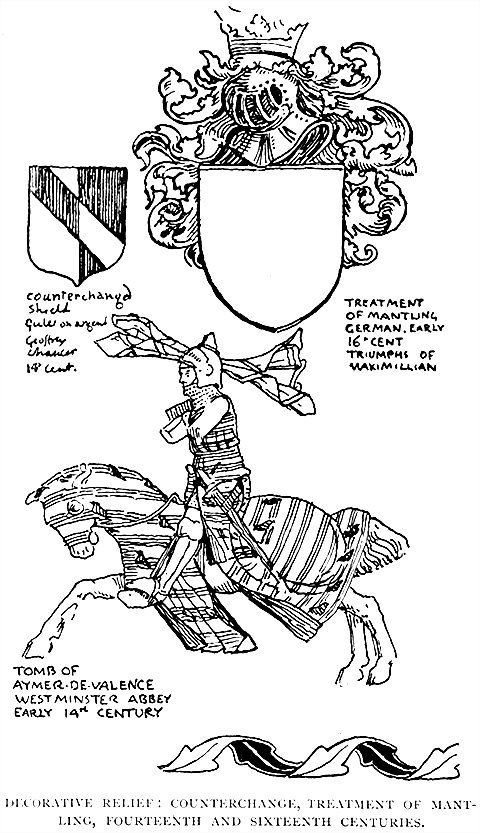 counterchanged
shield
Gules on argent
Geoffrey
Chaucer
14th Cent.
TREATMENT
OF MANTLING
GERMAN. EARLY
16TH CENT
TRIUMPHS OF
MAXIMILLIAN
TOMB OF
AYMER·DE·VALENCE
WESTMINSTER ABBEY
EARLY 14TH CENTURY
DECORATIVE RELIEF: COUNTERCHANGE, TREATMENT OF MANT-
LING, FOURTEENTH AND SIXTEENTH CENTURIES.